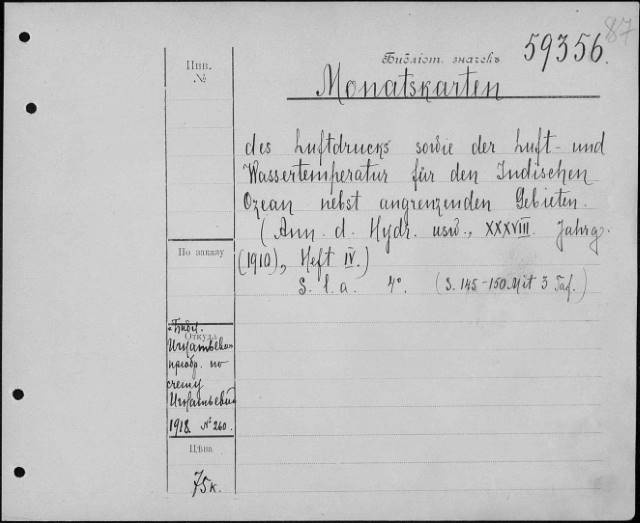 87
59356.
Библіот. значекъ
Инв.
№
Monatskarten
des Luftdrucks sowie der Luft- und
Wassertemperatur für den Indischen
Ozean nebst angrenzenden Gebieten.
(Ann. d. Hydr. usw., XXXVIII. Jahrg.
(1910), Heft IV.)
S. l. a. 4°. (S. 145-150. Mit 3 Taf.)
По заказу
Откуда
пріобр. по
счету
1918 № 260.
Цѣна
75 к.